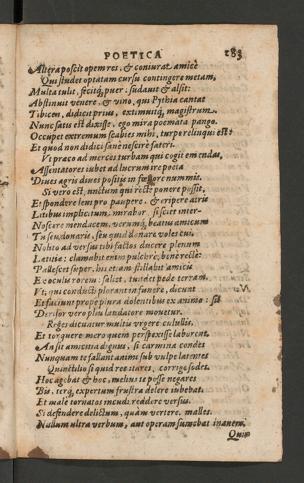 POETICA 183
Altera poscit opem res, & coniurat amicè.
Qui studet optatam cursu contingere metam,
Multa tulit, fecitq́; puer: sudauit & alsit:
Abstinuit venere, & vino, qui Pythia cantat
Tibicen, didicit prius, extimuitq́; magistrum.
Nunc satis est dixisse, ego mira poemata pango.
Occupet extremum scabies: mihi, turpe relinqui est:
Et quod non didici sanè nescire fateri.
Vt praeco ad merces turbam qui cogit emendas,
Assentatores iubet ad lucrum ire poëta
Diues agris, diues positis in foenore nummis.
Si vero est, vnctum qui rectè ponere possit,
Et spondere leui pro paupere, & eripere atris
Litibus implicitum, mirabor si sciet inter-
Noscere mendacem, verumq́; beatus amicum
Tu seu donaris, seu quid donare voles cui,
Nolito ad versus tibi factos ducere plenum
Laetitiae: clamabit enim pulchrè, benè, rectè:
Pallescet super, his etiam stillabit amicis
Ex oculis rorem: saliet, tundet pede terram.
Vt, qui conducti plorant in funere, dicunt
Et faciunt prope plura dolentibus ex animo: sic
Derisor vero plus laudatore mouetur.
Reges dicuntur multis vrgere culullis,
Et torquere mero quem perspexisse laborent,
An sit amicitia dignus, si carmina condes
Nunquam te fallant animi sub vulpe latentes
Quintilio si quid recitares, corrige sodes.
Hoc agebat & hoc, melius te posse negares
Bis, terq́; expertum frustra delere iubebat.
Et male tornatos incudi reddere versus.
Si defendere delictum, quàm vertere, malles.
Nullum vltra verbum, aut operam sumebat inanem,
Quin